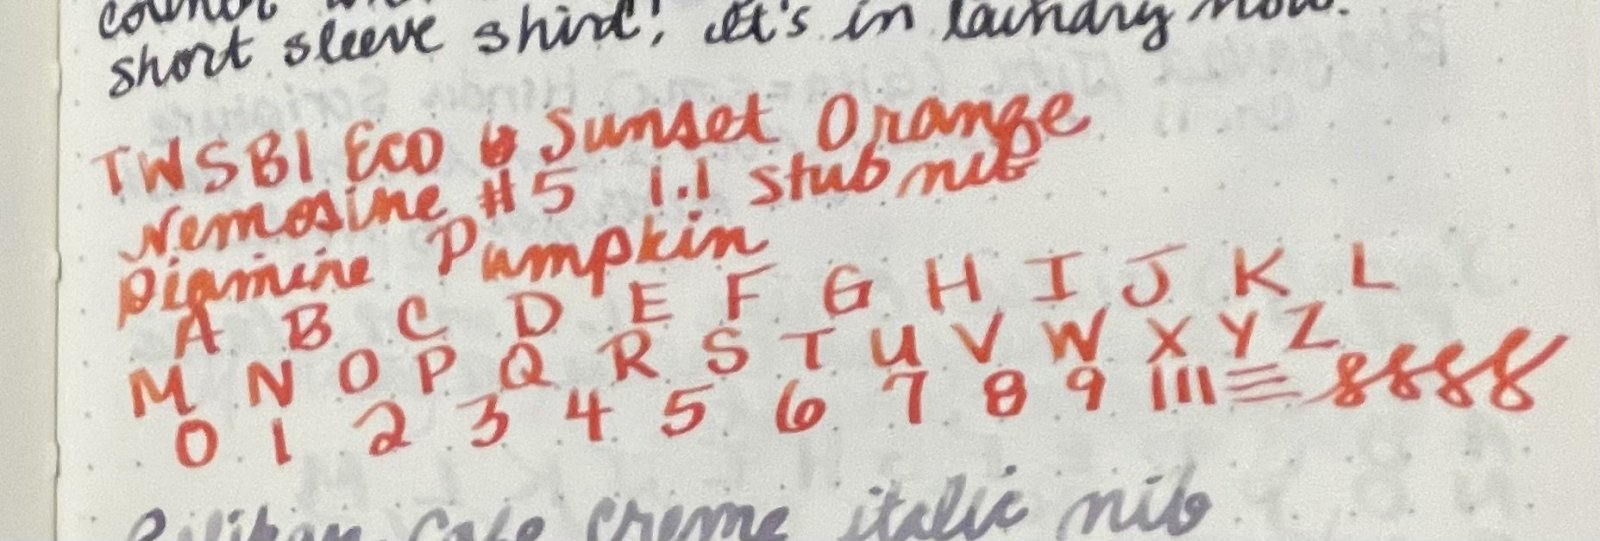 short sleeve shirt! It's in laundry now.
TWSBI Eco Sunset Orange
Nemosine #5 1.1 stub nib
Diamine Pumpkin
A B C D E F G H I J K L
M N O P Q R S T U V W X Y Z
0 1 2 3 4 5 6 7 8 9
Pelikan Cafe Creme italic nib